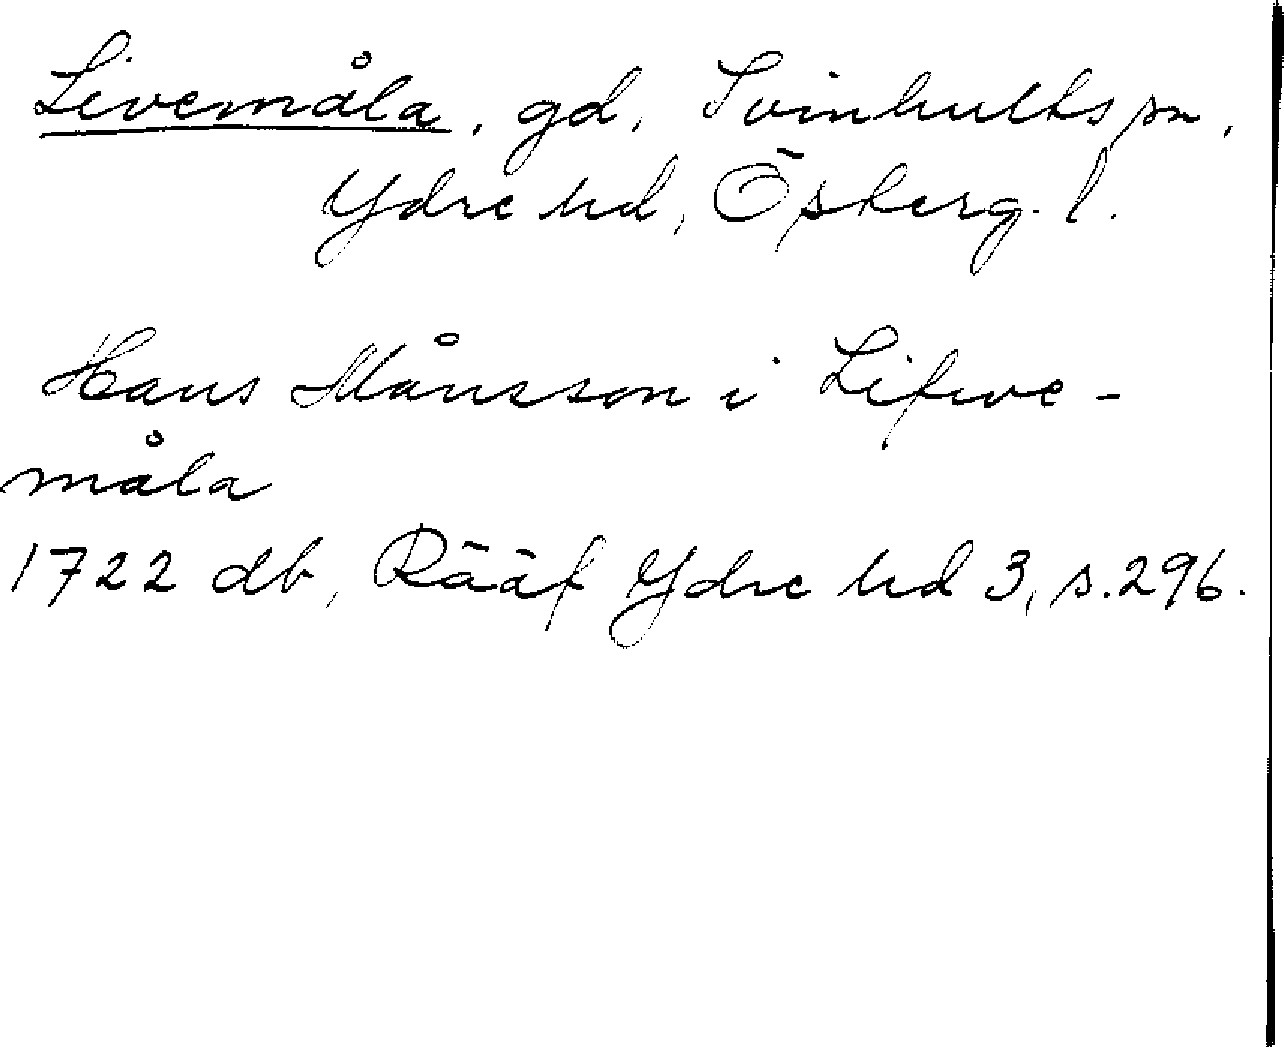 Livemåla, gd, Svinhults sn,
Ydre hd, Österg. l.
Hans Månsson i Lifwe-
måla
1722 db, Rääf Ydre hd 3, s. 296.